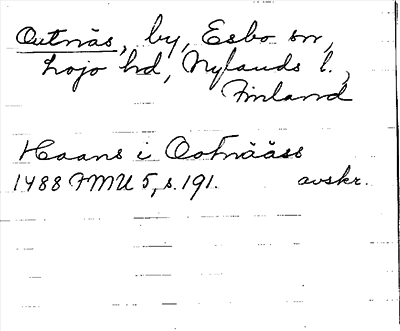 Outnäs, by, Esbo sn,
Lojo hd, Nylands l.,
Finland
Haans i Ootnääss
1488 FMU 5, s. 191. avskr.